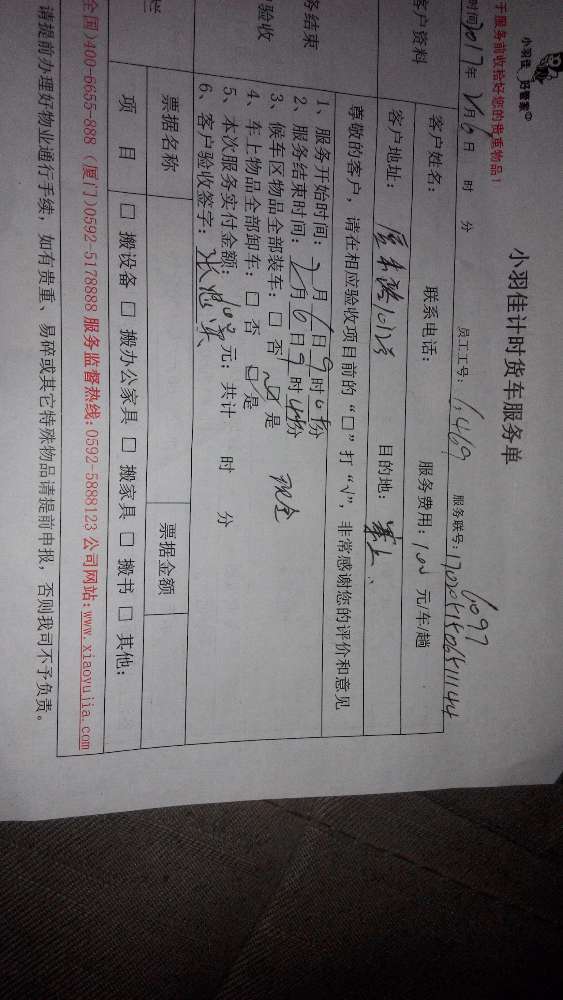 小羽佳 好管家
于服务前收拾好您的贵重物品！
小羽佳计时货车服务单
时间2017年2月6日 时 分 员工工号：1469 服务联号：
6097
客户资料
客户姓名： 联系电话： 服务费用：100 元/车/趟
客户地址： 目的地：
尊敬的客户，请在相应验收项目前的“□”打“√”，非常感谢您的评价和意见
务结束
验收
1、服务开始时间：2月6日9时 分
2、服务结束时间：2月6日9时 分
3、候车区物品全部装车：□ 否 □ 是
现金
4、车上物品全部卸车：□ 否 □ 是
5、本次服务实付金额：100元；共计 时 分
6、客户验收签字：
栏
票据名称 票据金额
项 目 □ 搬设备 □ 搬办公家具 □ 搬家具 □ 搬书 □ 其他：
全国)400-6655-888 (厦门)0592-5178888 服务监督热线:0592-5888123 公司网站:www.xiaoyujia.com
请提前办理好物业通行手续，如有贵重、易碎或其它特殊物品请提前申报，否则我司不予负责。